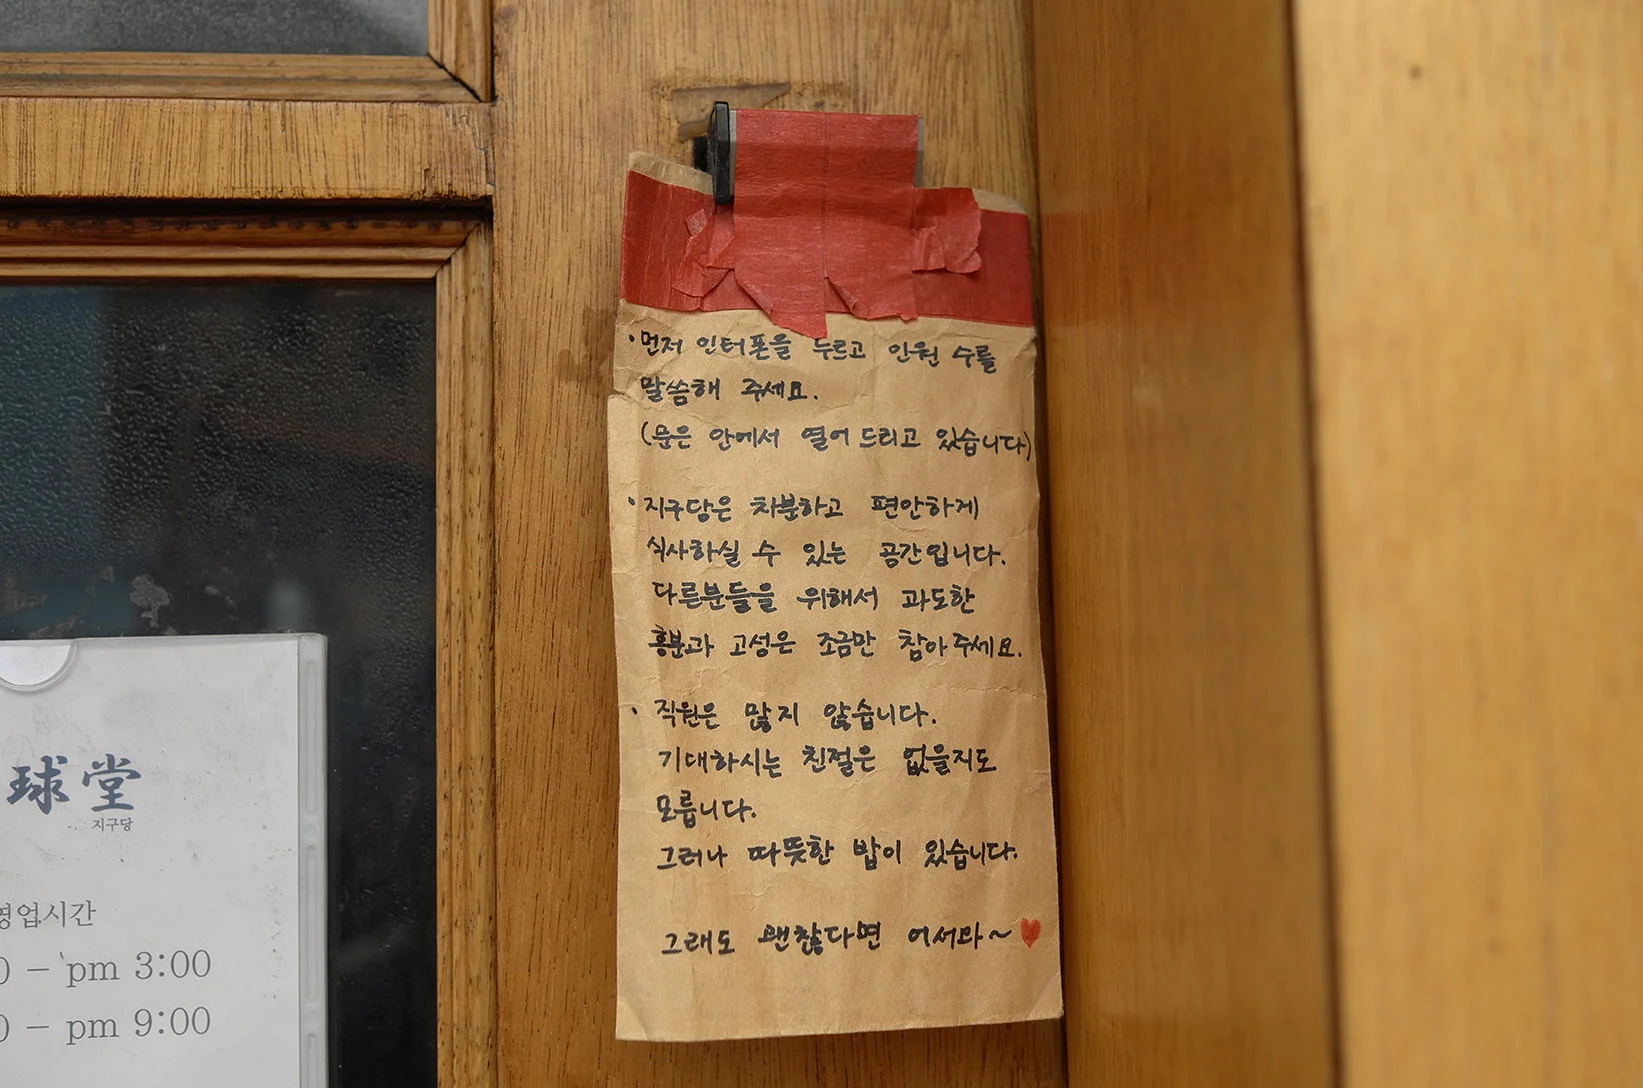 · 먼저 인터폰을 누르고 인원 수를
말씀해 주세요.
(문은 안에서 열어 드리고 있습니다)
· 지구당은 차분하고 편안하게
식사하실 수 있는 공간입니다.
다른분들을 위해서 과도한
흥분과 고성은 조금만 참아주세요.
· 직원은 많지 않습니다.
기대하시는 친절은 없을지도
모릅니다.
그러나 따뜻한 밥이 있습니다.
그래도 괜찮다면 어서와~ ♥
球堂
지구당
영업시간
0 – pm 3:00
0 – pm 9:00